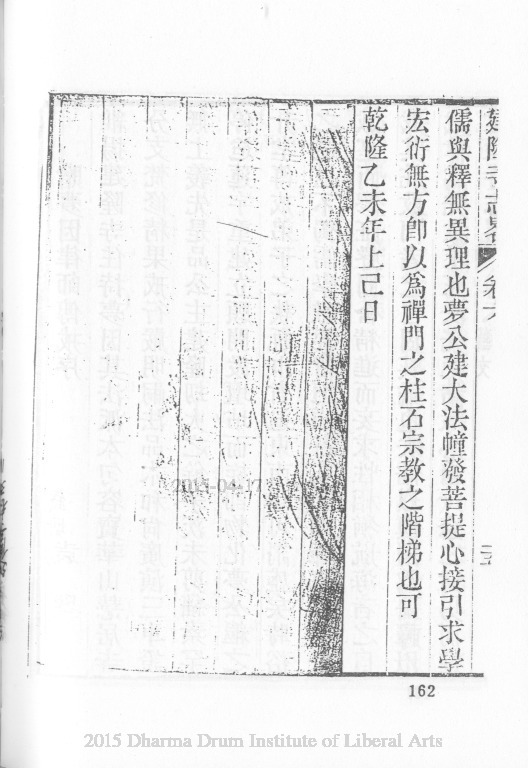 建隆寺志略 卷六
儒與釋無異理也夢公建大法幢發菩提心接引求學
宏術無方卽以爲禪門之柱石宗教之階梯也可
乾隆乙未年上巳日
2015-04-17
162
2015 Dharma Drum Institute of Liberal Arts